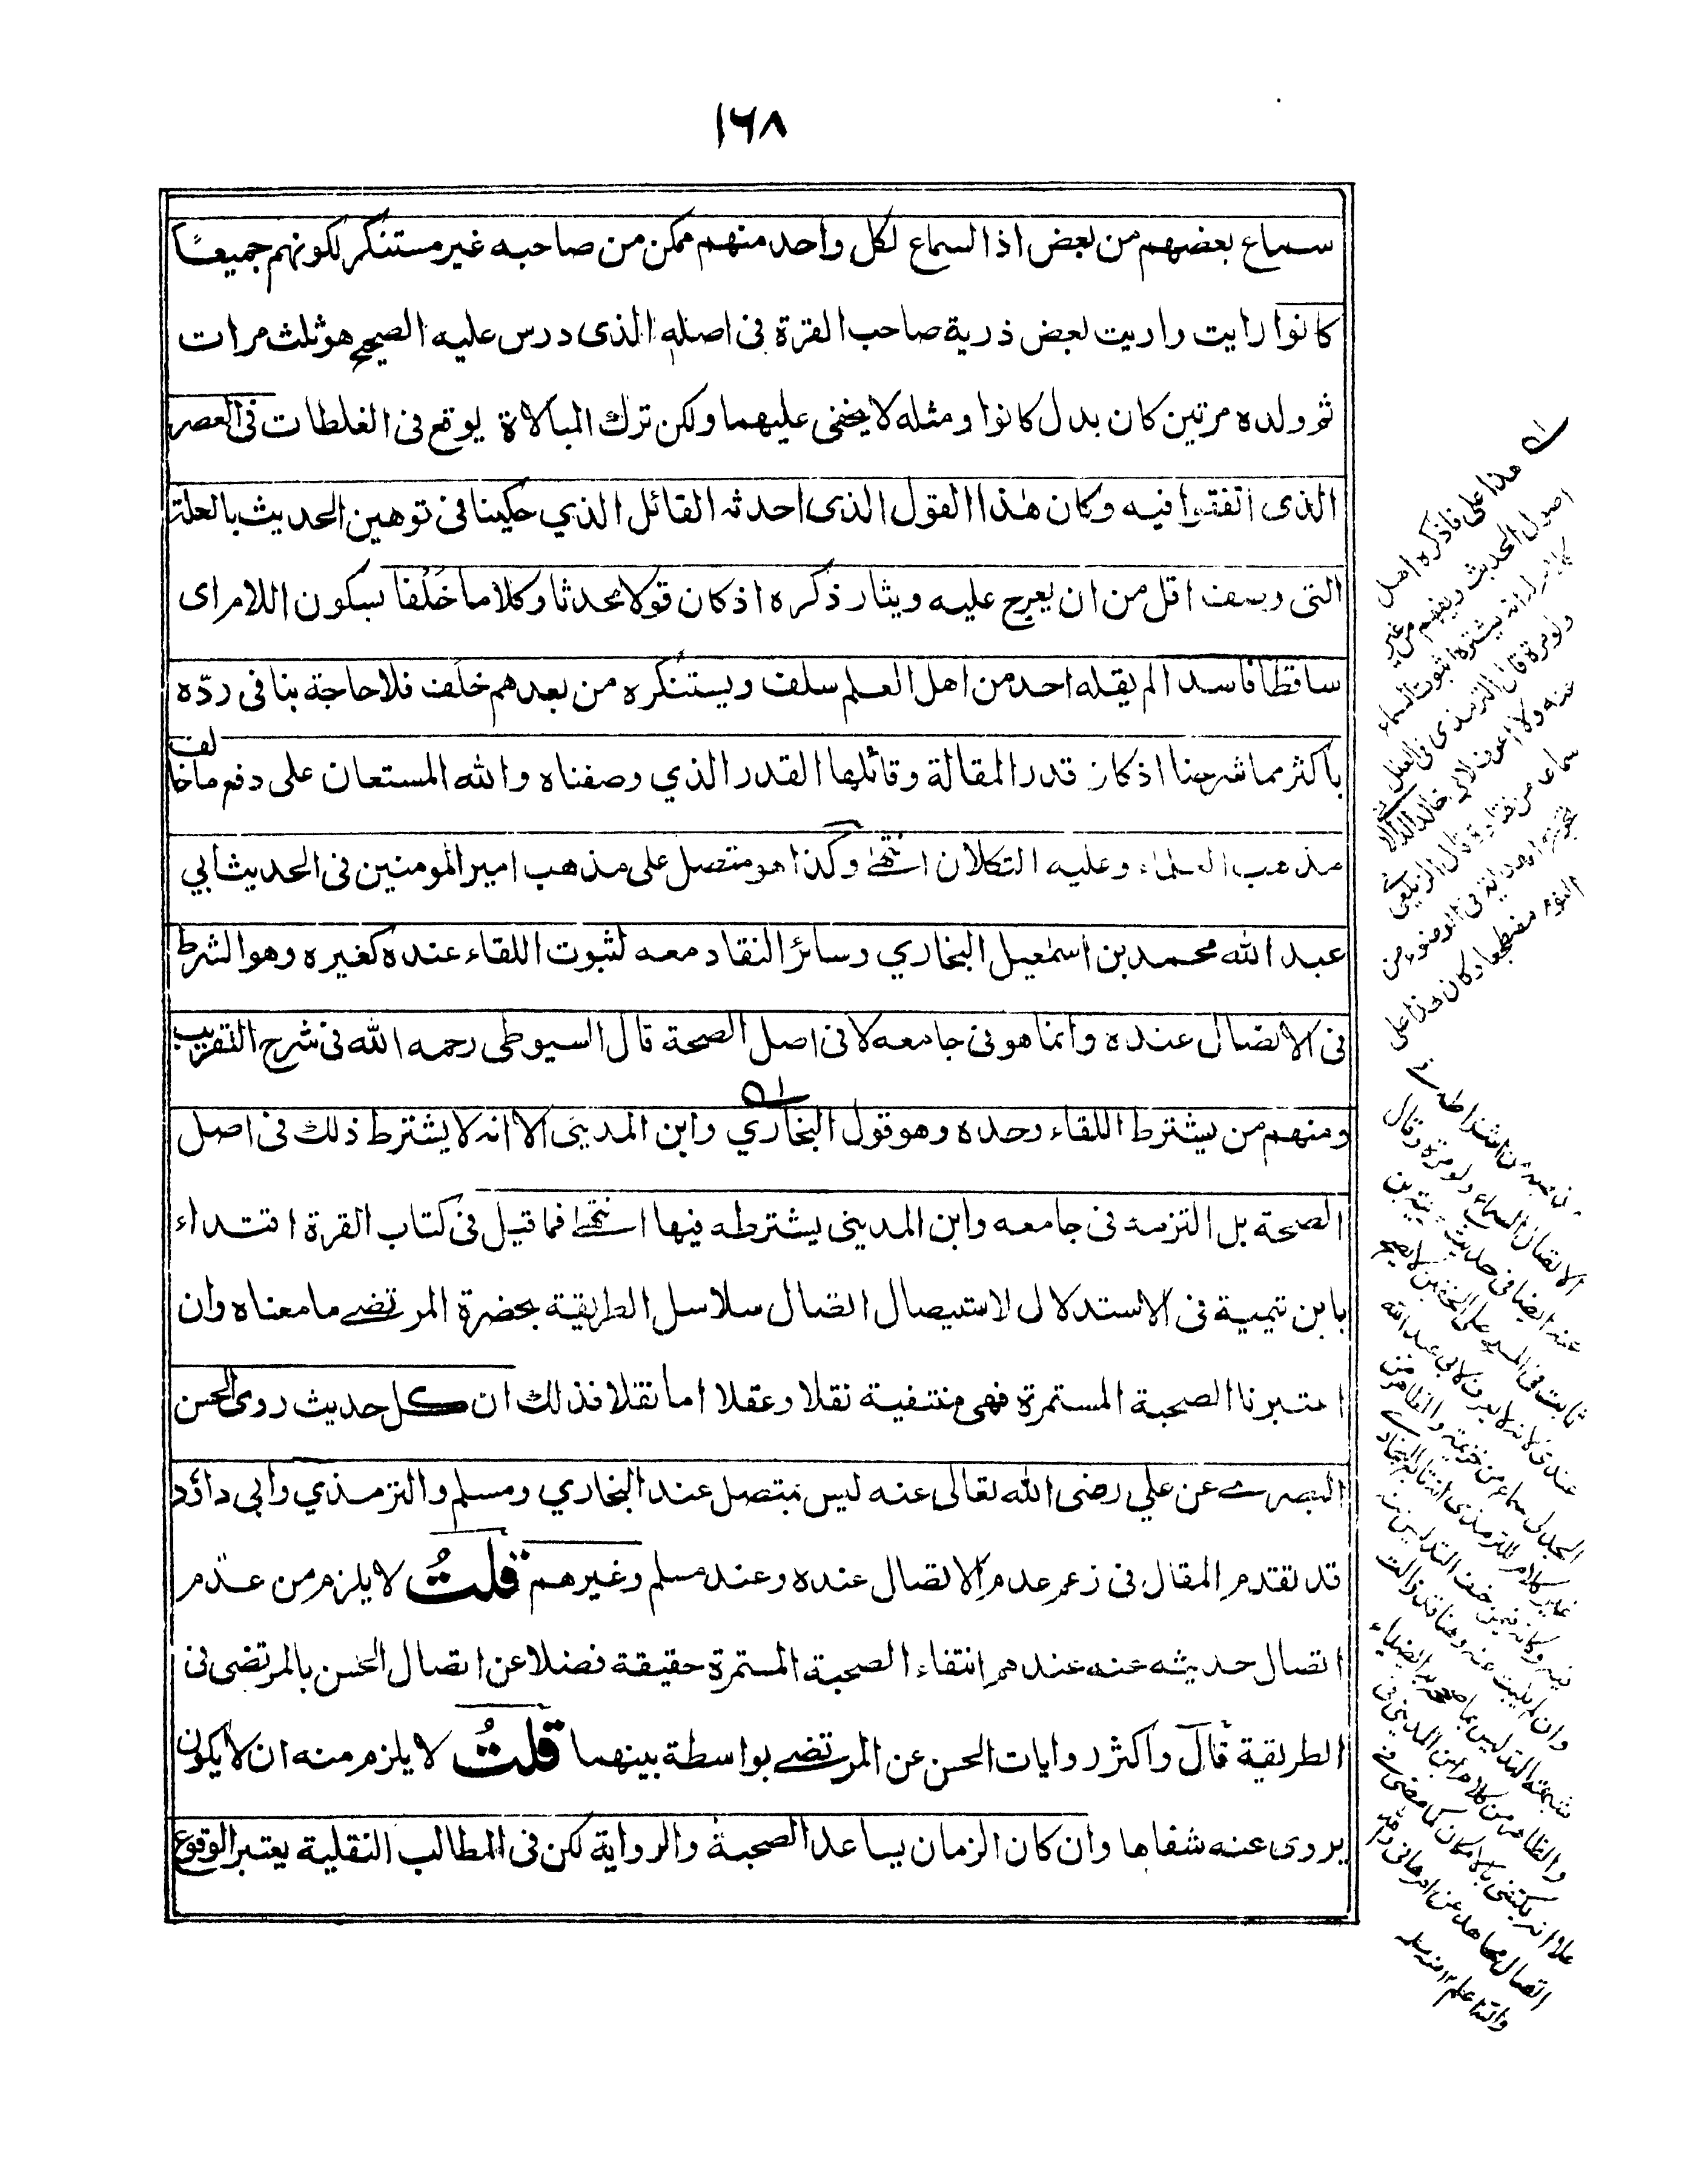 ١٦٨
سماع بعضهم من بعض اذ السماع لكل واحد منهم ممكن من صاحبه غير مستنكر لكونهم جميعًا
كانوا رايت واريت لعض ذرية صاحب القرة فى اصله الذى درس عليه الصحيح هو ثلث مرات
ثم ولده مرتين كان بدل كانوا ومثله لا يخفى عليهما ولكن ترك المبالاة يوقع فى الغلطات فى العصر
الذى اتفقوا فيه وكان هٰذا القول الذى احدثه القائل الذي حكينا فى توهين الحديث بالعلة
التى وصف اقل من ان يعرج عليه ويثار ذكره اذ كان قولا محدثا وكلاما خَلْفا بسكون اللام اى
ساقطا فاسدا لم يقله احد من اهل العلم سلف ويستنكره من بعدهم خلَف فلا حاجة بنا فى ردّه
باكثر مما شرحنا اذ كان قدر المقالة وقائلها القدر الذي وصفناه والله المستعان على دفع ما خالف
مذهب العلماء وعليه التكلان انتهى وكذا هو متصل على مذهب امير المومنين فى الحديث ابي
عبد الله محمد بن اسمٰعيل البخاري وسائر النقاد معه لثبوت اللقاء عنده كغيره وهو الشرط
فى الاتصال عنده وانما هو فى جامعه لا فى اصل الصحة قال السيوطى رحمه الله فى شرح التقريب
ومنهم من يشترط اللقاء وحده وهو قول البخاري وابن المدينى الا انه لا يشترط ذلك فى اصل
الصحة بل التزمه فى جامعه وابن المدينى يشترطه فيها انتهى فما قيل فى كتاب القرة اقتداء
بابن تيمية فى الاستدلال لاستيصال اتصال سلاسل الطريقة بحضرة المرتضى ما معناه وان
اعتبرنا الصحبة المستمرة فهى منتفية نقلا وعقلا اما نقلا فذلك ان كل حديث روى الحسن
البصرى عن علي رضى الله تعالى عنه ليس متصل عند البخاري ومسلم والترمذي وابى داؤد
قد تقدم المقال فى زعم عدم الاتصال عنده وعند مسلم وغيرهم قلتُ لا يلزم من عدم
اتصال حديثه عنه عندهم انتفاء الصحبة المستمرة حقيقة فضلا عن اتصال الحسن بالمرتضى فى
الطريقة قال واكثر روايات الحسن عن المرتضى بواسطة بينهما قلتُ لا يلزم منه ان لا يكون
يروى عنه شفاها وان كان الزمان يساعد الصحبة والرواية لكن فى المطالب النقلية يعتبر الوقوع
هذا على ما ذكره اهل
اصول الحديث ويفهم من غير
ولو مرة قال الترمذى فى العلل
عنه ولا اعرف لابى خالد الدالانى
سماعا من قتادة قال الزيلعى
النوم مضطجعا وكان هذا على
الاتصال السماع ولو مرة وقال
عنه ايضا فى حديث خزيمة بن
ثابت فى المسح على الخفين لا يصح
عندى لانه لا يعرف لابى عبد الله
الجدلى سماع من خزيمة
والظاهر من كلام ابن المدينى
والله اعلم